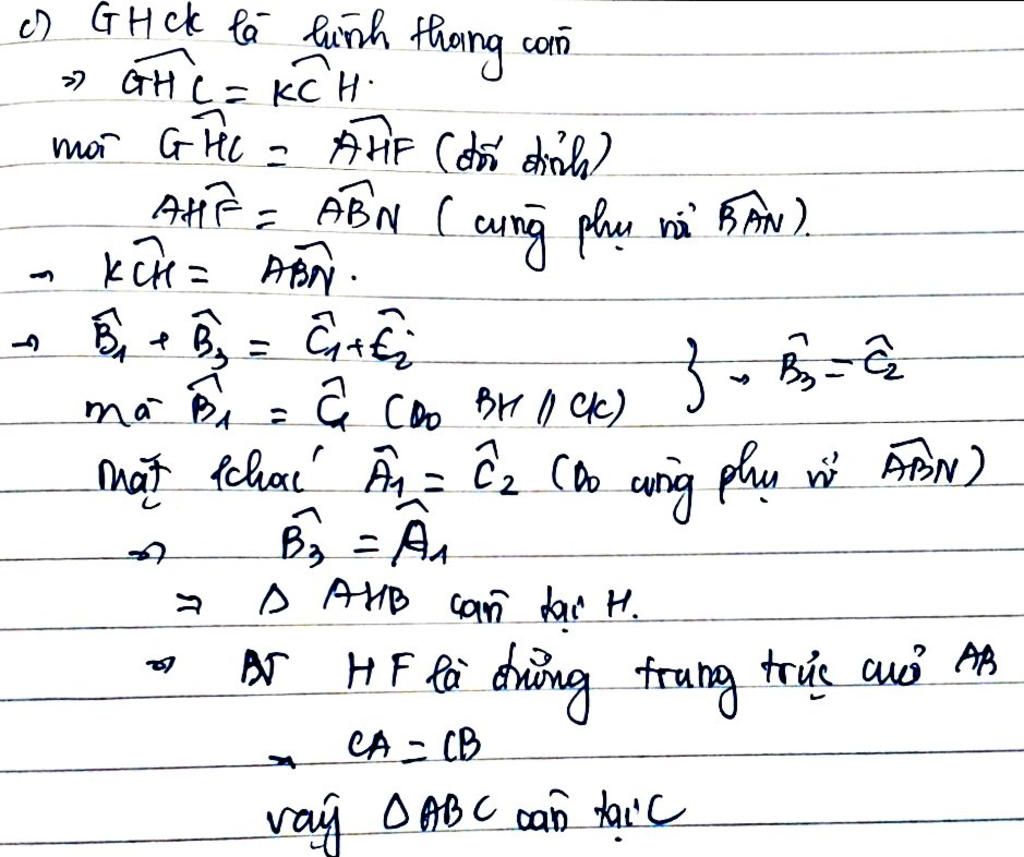 c) GHCK là hình thang cân
=> \widehat{GHC} = \widehat{KCH}.
mà \widehat{GHC} = \widehat{AHF} (đối đỉnh)
\widehat{AHF} = \widehat{ABN} (cùng phụ với \widehat{BAN}).
→ \widehat{KCH} = \widehat{ABN}.
→ \widehat{B_1} + \widehat{B_3} = \widehat{C_1} + \widehat{C_2}
mà \widehat{B_1} = \widehat{C_1} (Do BH // CK) } → \widehat{B_3} = \widehat{C_2}
Mặt khác \widehat{A_1} = \widehat{C_2} (Do cùng phụ với \widehat{ABN})
=> \widehat{B_3} = \widehat{A_1}
=> Δ AHB cân tại H.
=> HF là đường trung trực của AB
→ CA = CB
vậy Δ ABC cân tại C